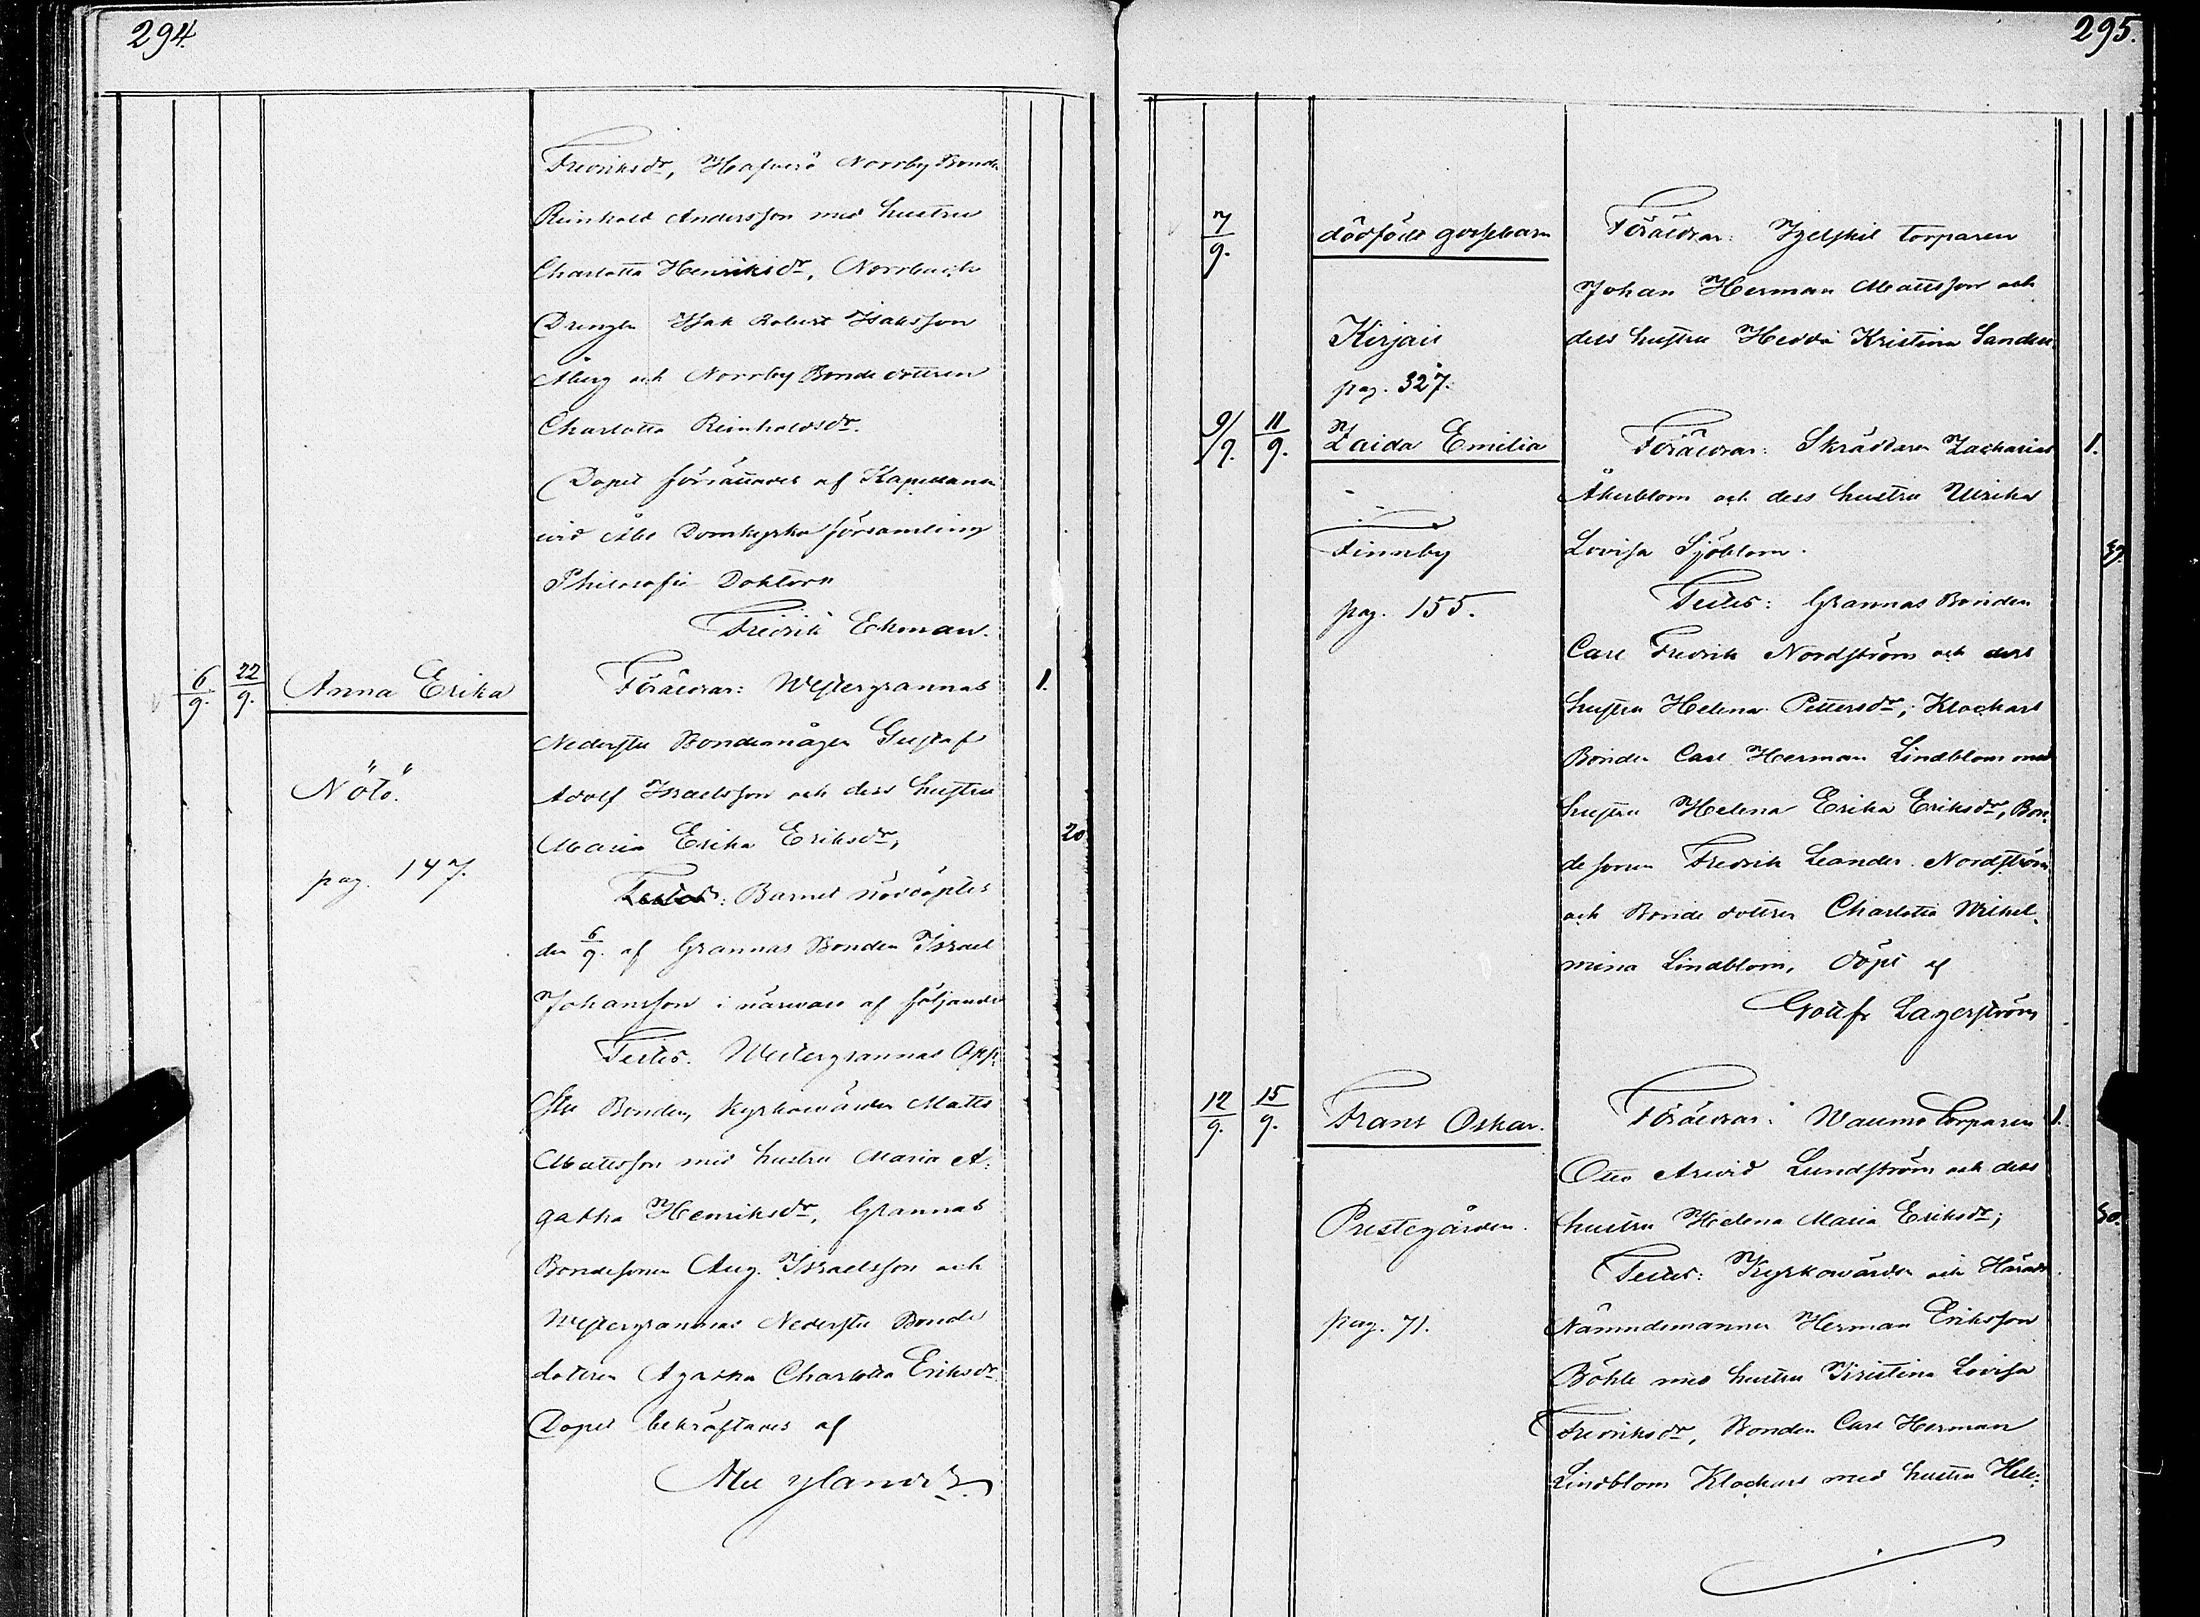 294.
Fredriksdr, Hafverö Norrby Bonden
Reinhold Andersson med hustru
Charlotta Henriksdr, Norrbacka
Drengen Isak Robert Isaksson
Åberg och Norrby Bondedottren
Charlotta Reinholdsdr.
Dopet förrättades af Kapellanen
vid Åbo Domkyrko församling
Philosofie Doktorn
Fredrik Ekman.
6/9. 22/9. Anna Erika Föräldrar: Westergrannas 1.
Nederste Bondemågen Gustaf
Nötö. Adolf Israelsson och dess hustru
Maria Erika Eriksdr, 20.
pag. 147. Testes: Barnet nöddöptes
den 6/9. af Grannas Bonden Israel
Johansson i närvaro af följande
Testes. Westergrannas Öf̈
Bonden, Kyrkovärden Matts
Mattsson med hustru Maria A:
gatha Henriksdr, Grannas
Bondesonen Aug. Israelsson och
Westergrannas Nederste Bonde
dottren Agatha Charlotta Eriksdr.
Dopet bekräftades af
295.
7/9. dödfödt gossebarn Föräldrar: torparen
Johan Herman Mattsson och
Kirjais dess hustru Hedda Kristina Sander.
pag. 327.
9/9. 11/9. Zaida Emilia Föräldrar: Skräddaren Zacharias 1.
Åkerblom och dess hustru Ulrika
Finnby Lovisa Sjöblom. 39.
pag. 155. Testes: Grannas Bonden
Carl Fredrik Nordström och dess
hustru Helena Pettersdr, Klockars
Bonden Carl Herman Lindblom med
hustru Helena Erika Eriksdr, Bon-
desonen Fredrik Leander Nordström
och Bondedottren Charlotta Wilhel-
mina Lindblom, döpt af
Gottfr Lagerström
12/9. 15/9. Frans Oskar. Föräldrar: Waumo Torparen 1.
Otto Arvid Lundström och dess
Prestegården. hustru Helena Maria Eriksdr; 30.
Testes: Kyrkovärden och Härads
pag. 71. Nämndemannen Herman Eriksson
Böhle med hustru Kristina Lovisa
Fredriksdr, Bonden Carl Herman
Lindblom Klockars med hustru Hele: